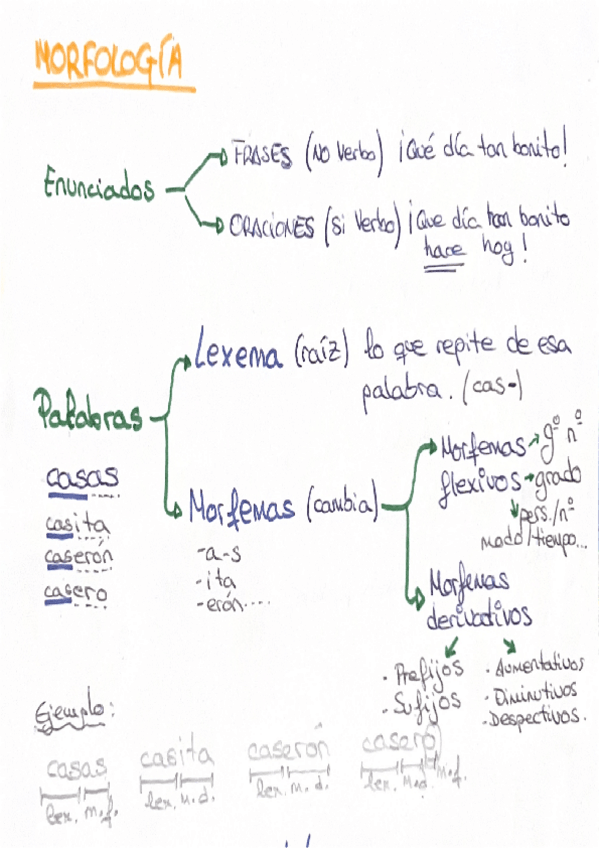 MORFOLOGÍA
Enunciados
FRASES (No Verbo) ¡Qué día tan bonito!
ORACIONES (Si Verbo) ¡Que día tan bonito
hace hoy!
Palabras
Lexema (raíz) lo que repite de esa
palabra. (cas-)
Morfemas (cambia)
-a-s
-ita
-erón....
casas
casita
caserón
casero
Morfemas → gº nº
flexivos → grado
pers./nº
modo/tiempo...
Morfemas
derivativos
· Prefijos
· Sufijos
· Aumentativos
· Diminutivos
· Despectivos.
Ejemplo:
casas casita caserón casero
lex. m.f. lex. m.d. lex. m.d. lex. m.d. m.f.